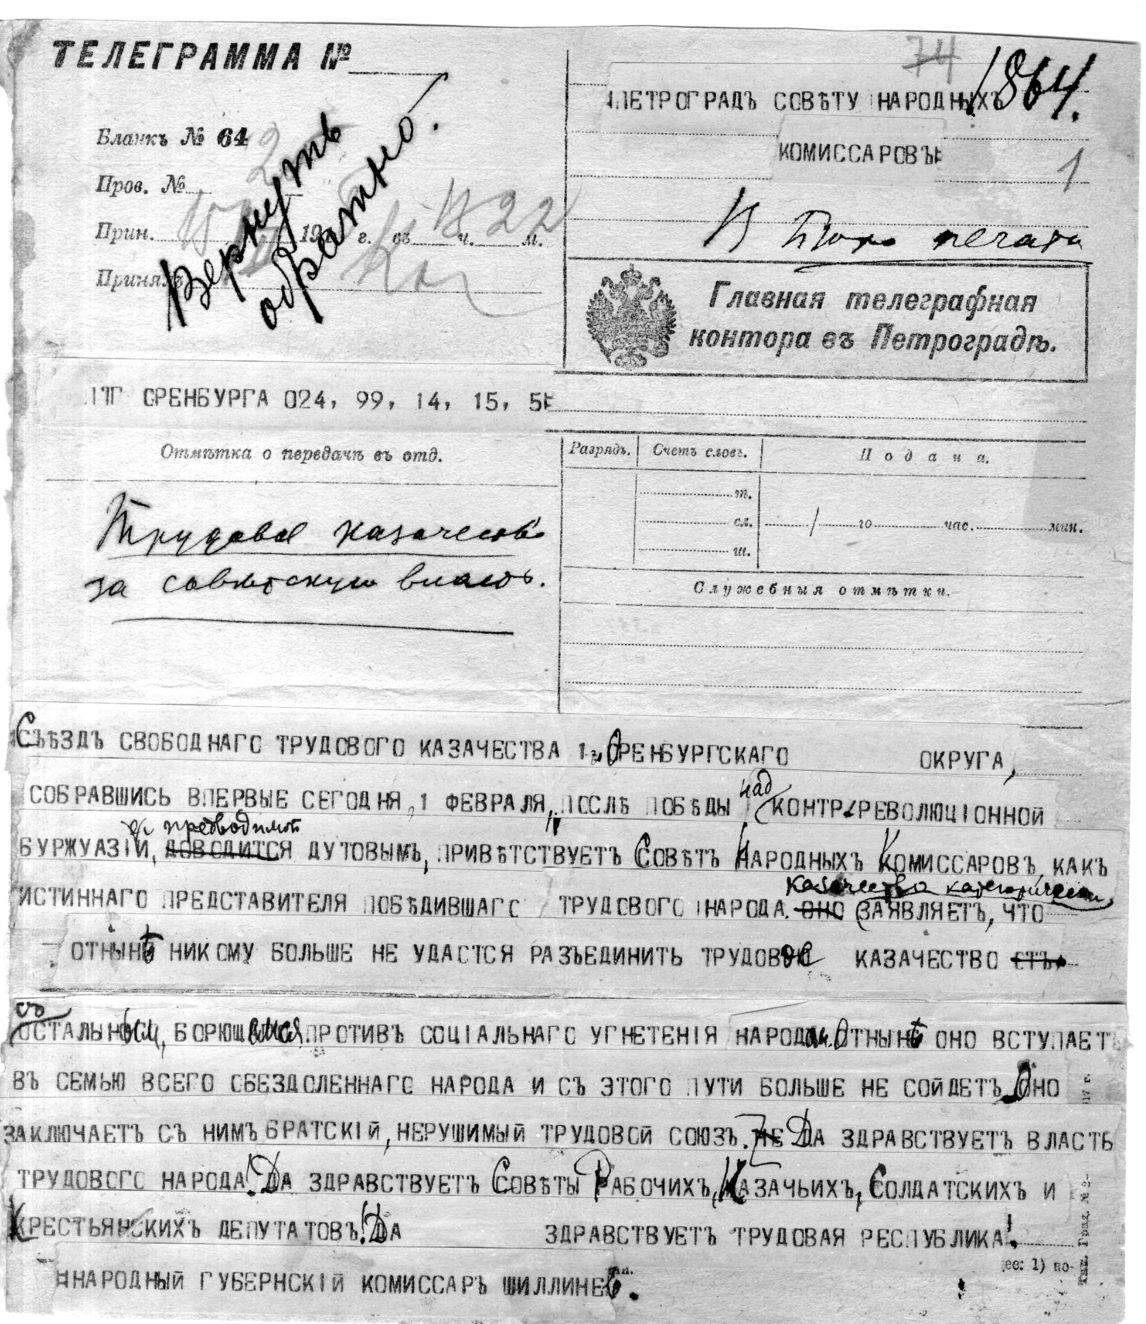 ТЕЛЕГРАММА №
74
1864.
ПЕТРОГРАДЪ СОВѢТУ НАРОДНЫХЪ
КОМИССАРОВЪ
1
Бланкъ № 64
Пров. №
Прин. 19 г. въ ч. 22 м.
Принялъ
Вернуть
обратно.
В Бюро печати
Главная телеграфная
контора въ Петроградѣ.
СРЕНБУРГА 024, 99, 14, 15, 5
Отмѣтка о передачѣ въ отд.
Разрядъ.
Счетъ словъ.
Подана.
т.
сл.
ш.
/ го час. мин.
Служебныя отмѣтки.
Трудовое казачество
за совѣтскую власть.
СЪѢЗДЪ СВОБОДНАГО ТРУДОВОГО КАЗАЧЕСТВА 1-го ОРЕНБУРГСКАГО ОКРУГА,
СОБРАВШИСЬ ВПЕРВЫЕ СЕГОДНЯ, 1 ФЕВРАЛЯ, ПОСЛѢ ПОБѢДЫ над КОНТР-РЕВОЛЮЦІОННОЙ
предводимой
БУРЖУАЗІЙ, ДОВОДИТСЯ ДУТОВЫМЪ, ПРИВѢТСТВУЕТЪ СОВѢТЪ НАРОДНЫХЪ КОМИССАРОВЪ, КАКЪ
казачество категорически
ИСТИННАГО ПРЕДСТАВИТЕЛЯ ПОБѢДИВШАГО ТРУДОВОГО НАРОДА. ОНО ЗАЯВЛЯЕТЪ, ЧТО
ОТНЫНѢ НИКОМУ БОЛЬШЕ НЕ УДАСТСЯ РАЗЪЕДИНИТЬ ТРУДОВОЕ КАЗАЧЕСТВО СТЪ
съ
ОСТАЛЬНЫМ, БОРЮЩИМСЯ ПРОТИВЪ СОЦІАЛЬНАГО УГНЕТЕНІЯ НАРОДОМ. ОТНЫНѢ ОНО ВСТУПАЕТЪ
ВЪ СЕМЬЮ ВСЕГО ОБЕЗДОЛЕННАГО НАРОДА И СЪ ЭТОГО ПУТИ БОЛЬШЕ НЕ СОЙДЕТЪ. ОНО
ЗАКЛЮЧАЕТЪ СЪ НИМЪ БРАТСКІЙ, НЕРУШИМЫЙ ТРУДОВОЙ СОЮЗЪ. НЕ ДА ЗДРАВСТВУЕТЪ ВЛАСТЬ
ТРУДОВОГО НАРОДА! ДА ЗДРАВСТВУЕТЪ СОВѢТЫ РАБОЧИХЪ, КАЗАЧЬИХЪ, СОЛДАТСКИХЪ И
КРЕСТЬЯНСКИХЪ ДЕПУТАТОВЪ! ДА ЗДРАВСТВУЕТЪ ТРУДОВАЯ РЕСПУБЛИКА!
НАРОДНЫЙ ГУБЕРНСКІЙ КОМИССАРЪ ШИЛЛИНЕ